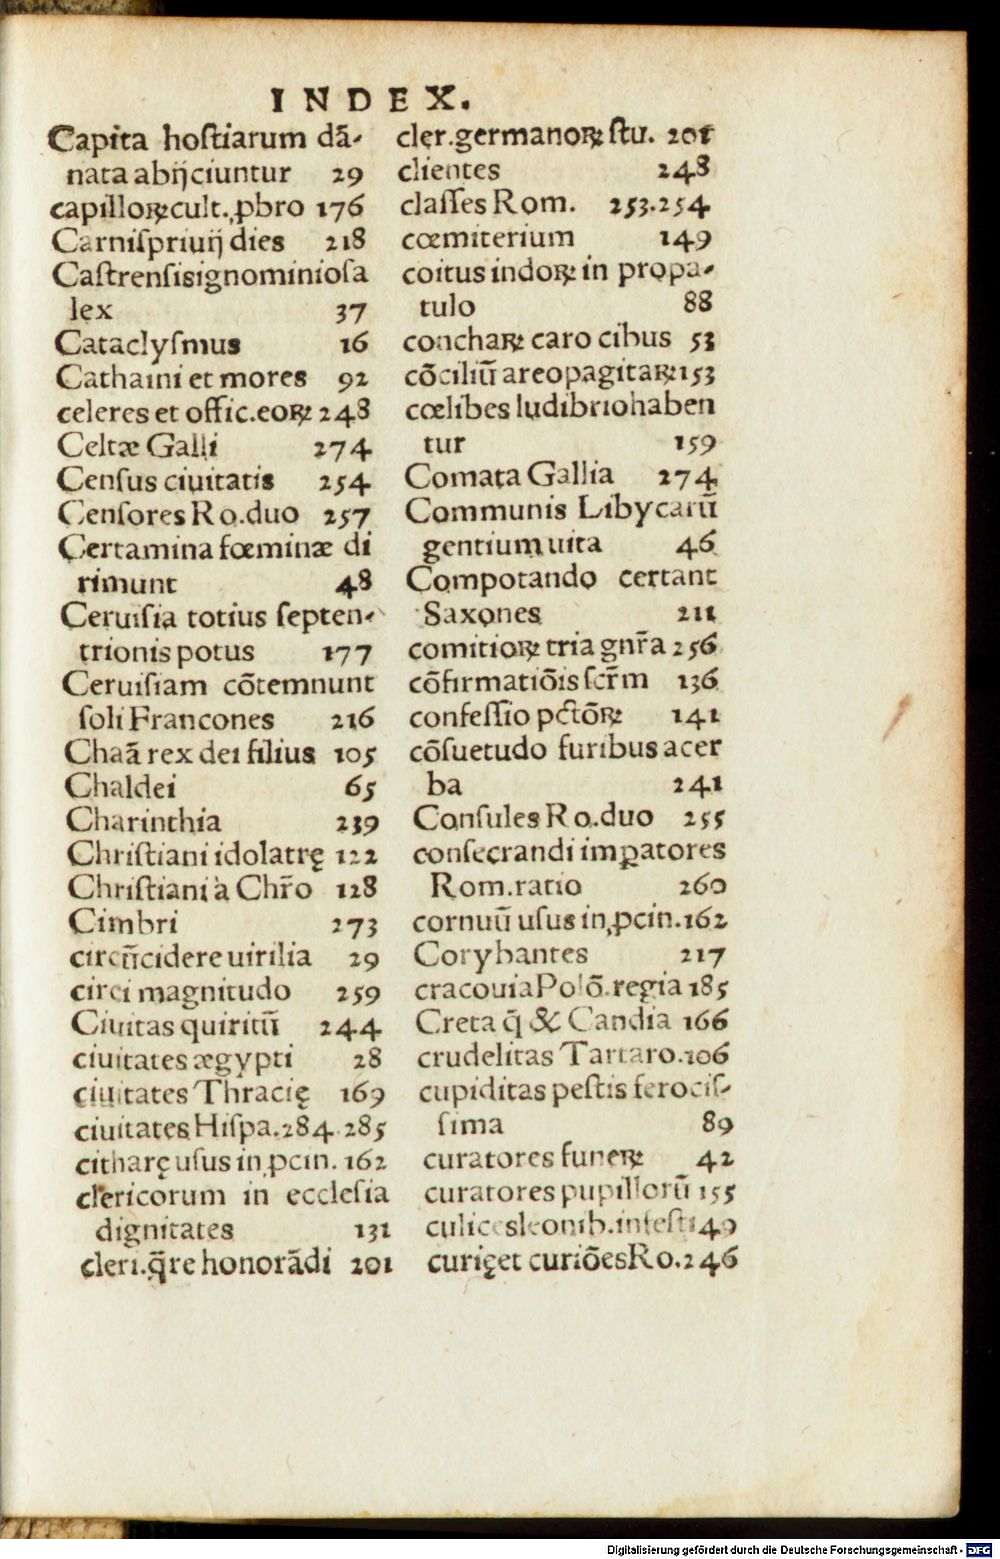 INDEX.
Capita hoſtiarum dã-
nata abijciuntur 29
capilloꝝ cult. ꝓbro 176
Carniſpriuij dies 218
Caſtrenſis ignominioſa
lex 37
Cataclyſmus 16
Cathaini et mores 92
celeres et offic. eoꝝ 248
Celtæ Galli 274
Cenſus ciuitatis 254
Cenſores Ro. duo 257
Certamina fœminæ di
rimunt 48
Ceruiſia totius ſepten-
trionis potus 177
Ceruiſiam cõtemnunt
ſoli Francones 216
Chaã rex dei filius 105
Chaldei 65
Charinthia 239
Chriſtiani idolatrę 122
Chriſtiani à Chr̃o 128
Cimbri 273
circũcidere uirilia 29
circi magnitudo 259
Ciuitas quiritũ 244
ciuitates ægypti 28
ciuitates Thracię 169
ciuitates Hiſpa. 284.285
citharę uſus in ꝓcin. 162
clericorum in eccleſia
dignitates 131
cleri. q̃re honorãdi 201
cler. germanoꝝ ſtu. 201
clientes 248
claſſes Rom. 253.254
cœmiterium 149
coitus indoꝝ in propa-
tulo 88
conchaꝝ caro cibus 53
cõciliũ areopagitaꝝ 153
cœlibes ludibrio haben
tur 159
Comata Gallia 274
Communis Libycarũ
gentium uita 46
Compotando certant
Saxones 211
comitioꝝ tria gnr̃a 256
cõfirmatiõis ſcr̃m 136
confeſſio pctõꝝ 141
cõſuetudo furibus acer
ba 241
Conſules Ro. duo 255
conſecrandi imꝑatores
Rom. ratio 260
cornuũ uſus in ꝓcin. 162
Corybantes 217
cracouia Polõ. regia 185
Creta q̃ & Candia 166
crudelitas Tartaro. 106
cupiditas peſtis ferociſ-
ſima 89
curatores funeꝝ 42
curatores pupillorũ 155
culices leonib. infeſti 49
curię et curiões Ro. 246
Digitalisierung gefördert durch die Deutsche Forschungsgemeinschaft - DFG